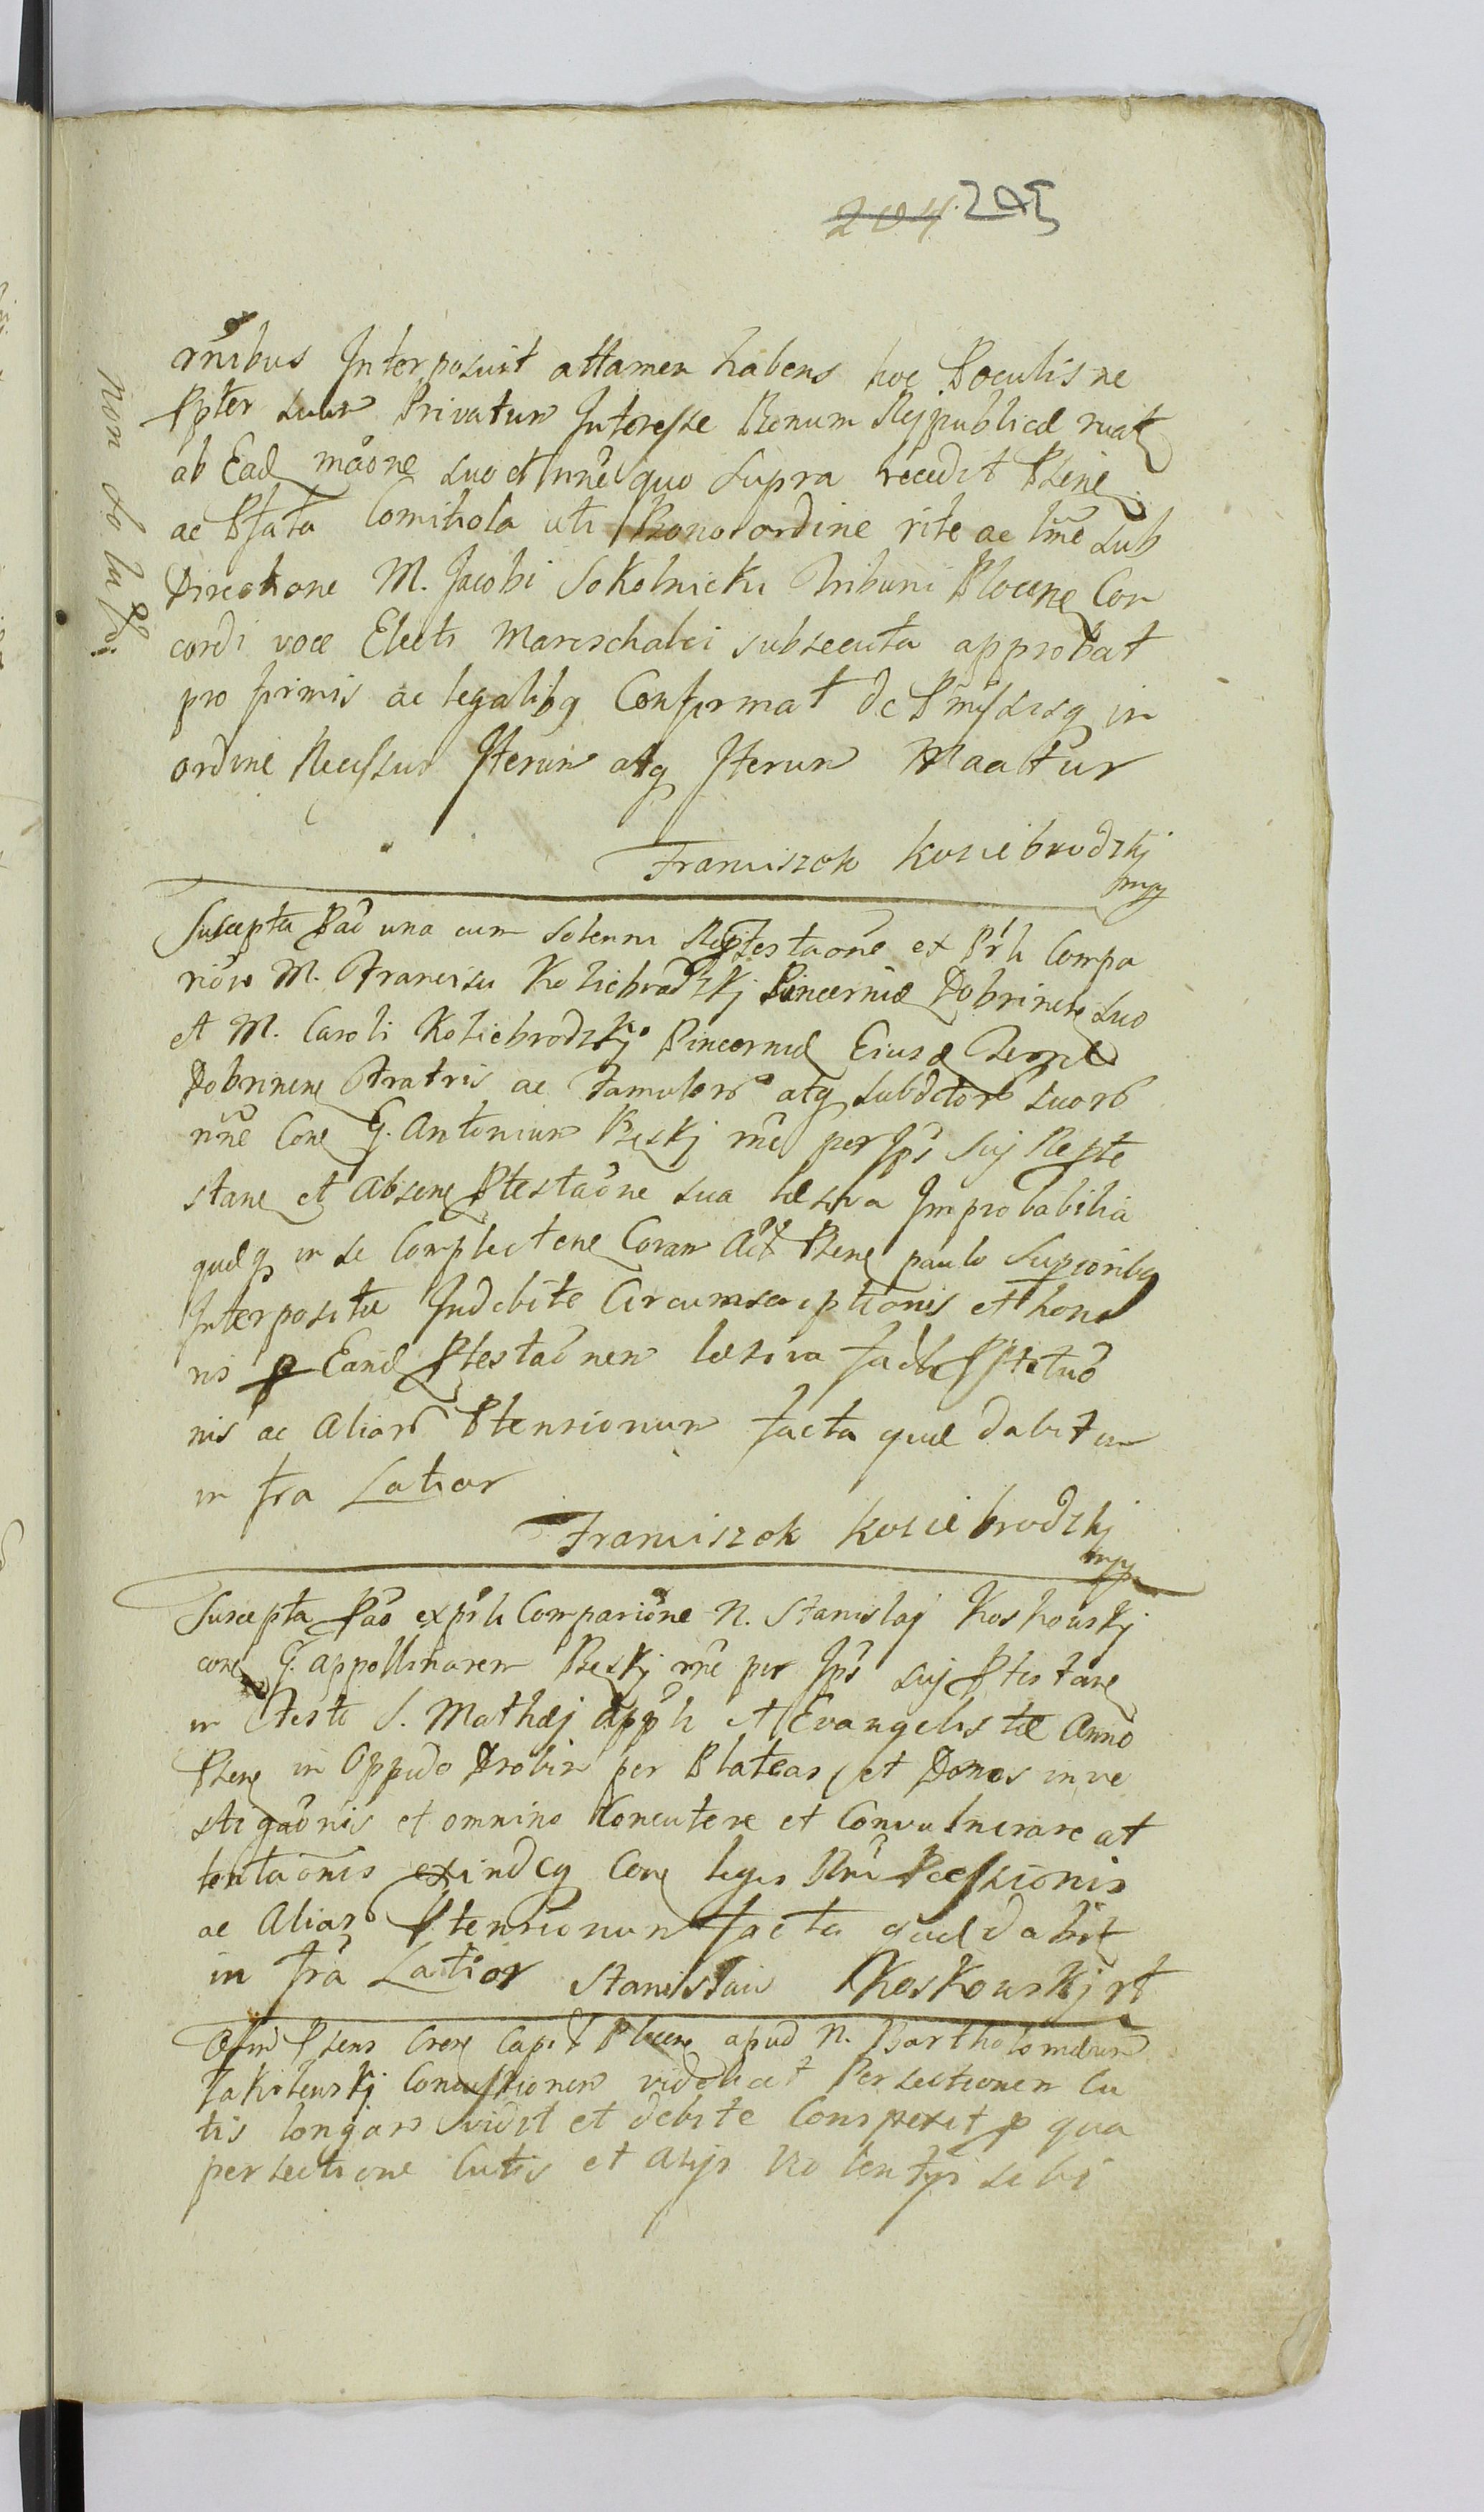 204. 205
non solut
omnibus Interposuit attamen habens hoc Poculis ne
Ppter suum Privatum Interesse Bonum Rejpublicæ ruat
ab Ead maone suo et nne quo supra recedit Psene
ac Pfata Comitiola uti Bono ordine rite ac lme sub
Directione M. Jacobi Sokolnicki Tribuni Plocene Con
cordi voce Electi Mareschalci subsecuta approbat
pro firmis ac legalibq Confirmat de Pmissisq in
ordine Recessus Iterum atq Iterum Maatur
Franciszek Kosiebrodzkj
mpp
Suscepta Pao una cum solenni Reptestaone ex Prli Compa
rione M. Francisci Kosiebrodzkj Pincernæ Dobrinene suo
et M. Caroli Kosiebrodzkj Pincernæ Eiusd Terræ
Dobrinene Fratris ac Famulor atq subditor suor
nne Cone G. Antonium Bęskj me per Ips sui Repte
stane et Absene Ptestaone sua læsiva Improbabilia
quæq in se Complectene Coram Act Psene paulo superioribq
Interposita Indebite Circumscriptionis et hono
ris p Eand Ptestaonem læsiva facti Pstituo
nis ac Alior Ptensionum facta quæ dabitur
in fra Latior
Franciszek Kosiebrodzkj
mpp
Suscepta Pao ex prli Comparione N. Stanislaj Koskowskj
cone G. Appollinarem Bęskj me per Ips suj Ptestane
in Festo S. Mathæj Appli et Evangelistæ Anno
Psene in Oppido Drobin per Plateas et Domos inve
stigaonis et omnino Concutere et Convulnerare at
tentaonis exindeq Cone legis Pni Pcessionis
ac Alior Ptensionum facta quæ dabit
in fra Latior Stanislaw Koskowskj rt
Psens Cone Capit Plocene apud N. Bartholomæum
Jakolewskj Concussionem videlicet Persectionem Cu
tis longam vidit et debite Conspexit p qua
persectione Cutis et alijs sibi